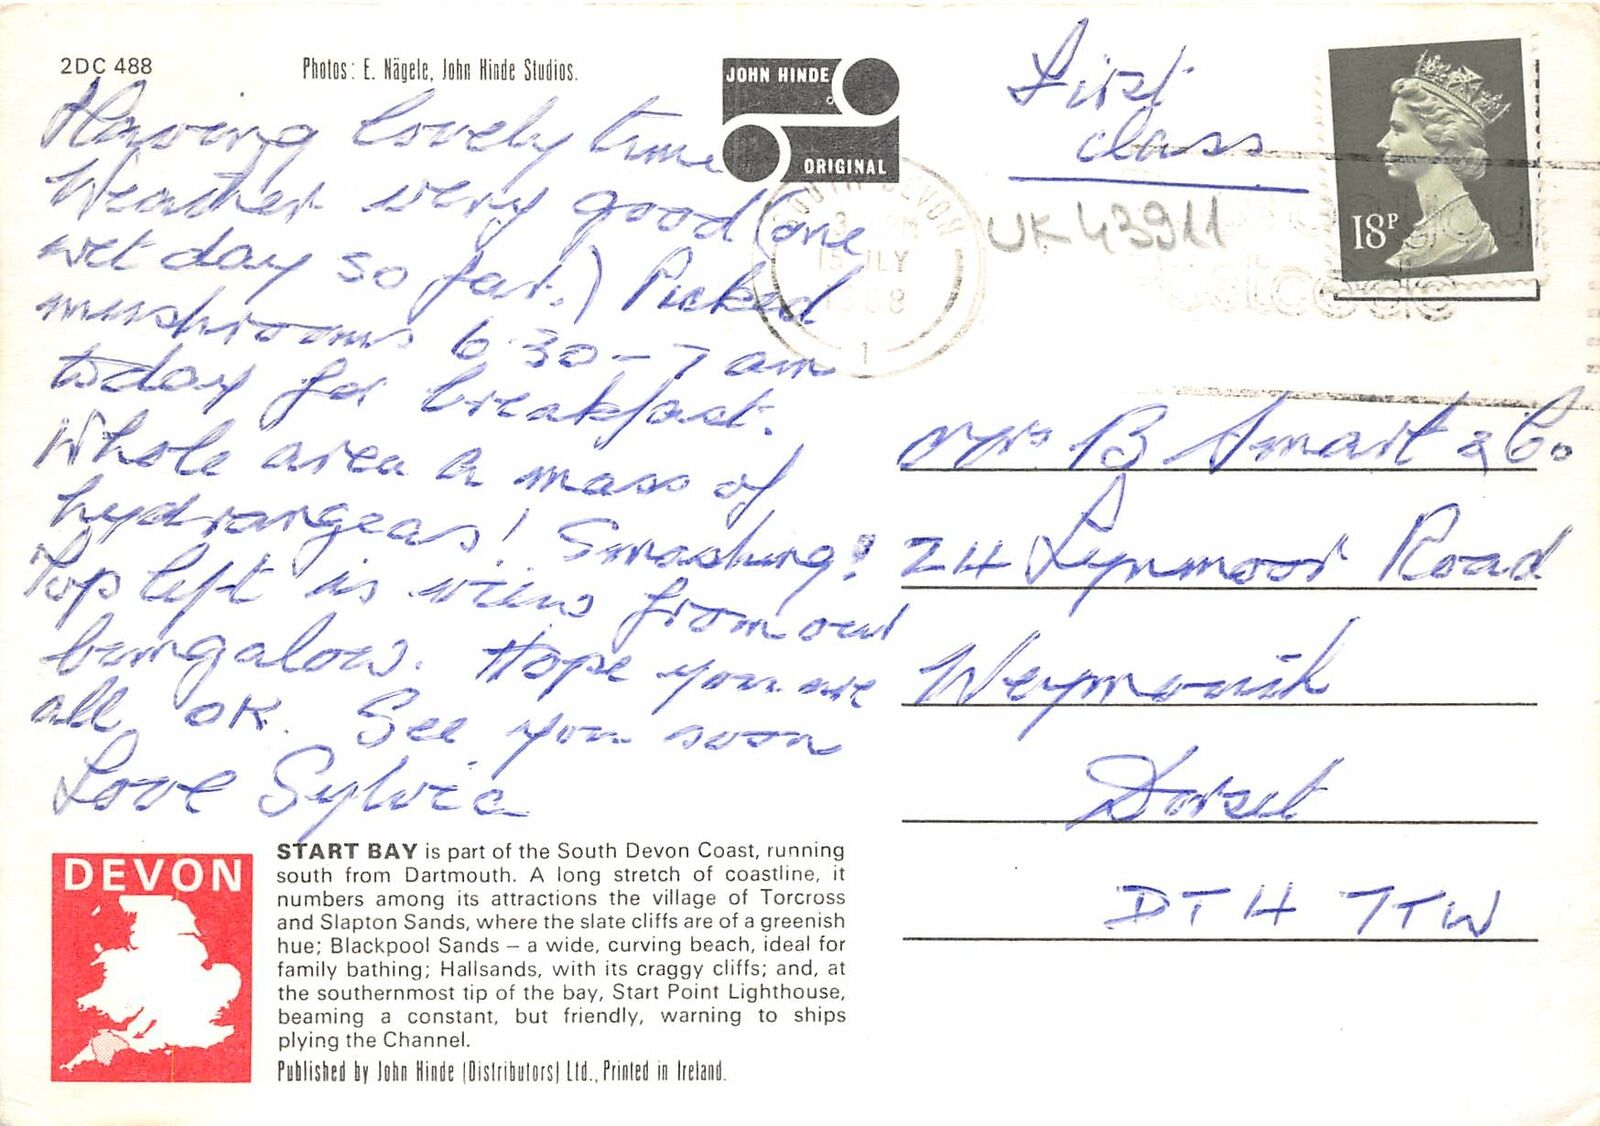 2DC 488
Photos: E. Nägele, John Hinde Studios.
JOHN HINDE
ORIGINAL
First
class
18P
UK43911
SOUTH DEVON
15 JLY
1988
1
postcode
Having lovely time
Weather very good (one
wet day so far.) Picked
mushrooms 6.30 - 7 am
today for breakfast.
Whole area a mass of
hydrangeas! Smashing!
Top left is view from our
bungalow. Hope you are
all OK. See you soon
Love Sylvia
Mrs B Smart & Co
24 Lynmoor Road
Weymouth
Dorset
DT4 7TW
DEVON
START BAY is part of the South Devon Coast, running
south from Dartmouth. A long stretch of coastline, it
numbers among its attractions the village of Torcross
and Slapton Sands, where the slate cliffs are of a greenish
hue; Blackpool Sands – a wide, curving beach, ideal for
family bathing; Hallsands, with its craggy cliffs; and, at
the southernmost tip of the bay, Start Point Lighthouse,
beaming a constant, but friendly, warning to ships
plying the Channel.
Published by John Hinde (Distributors) Ltd., Printed in Ireland.